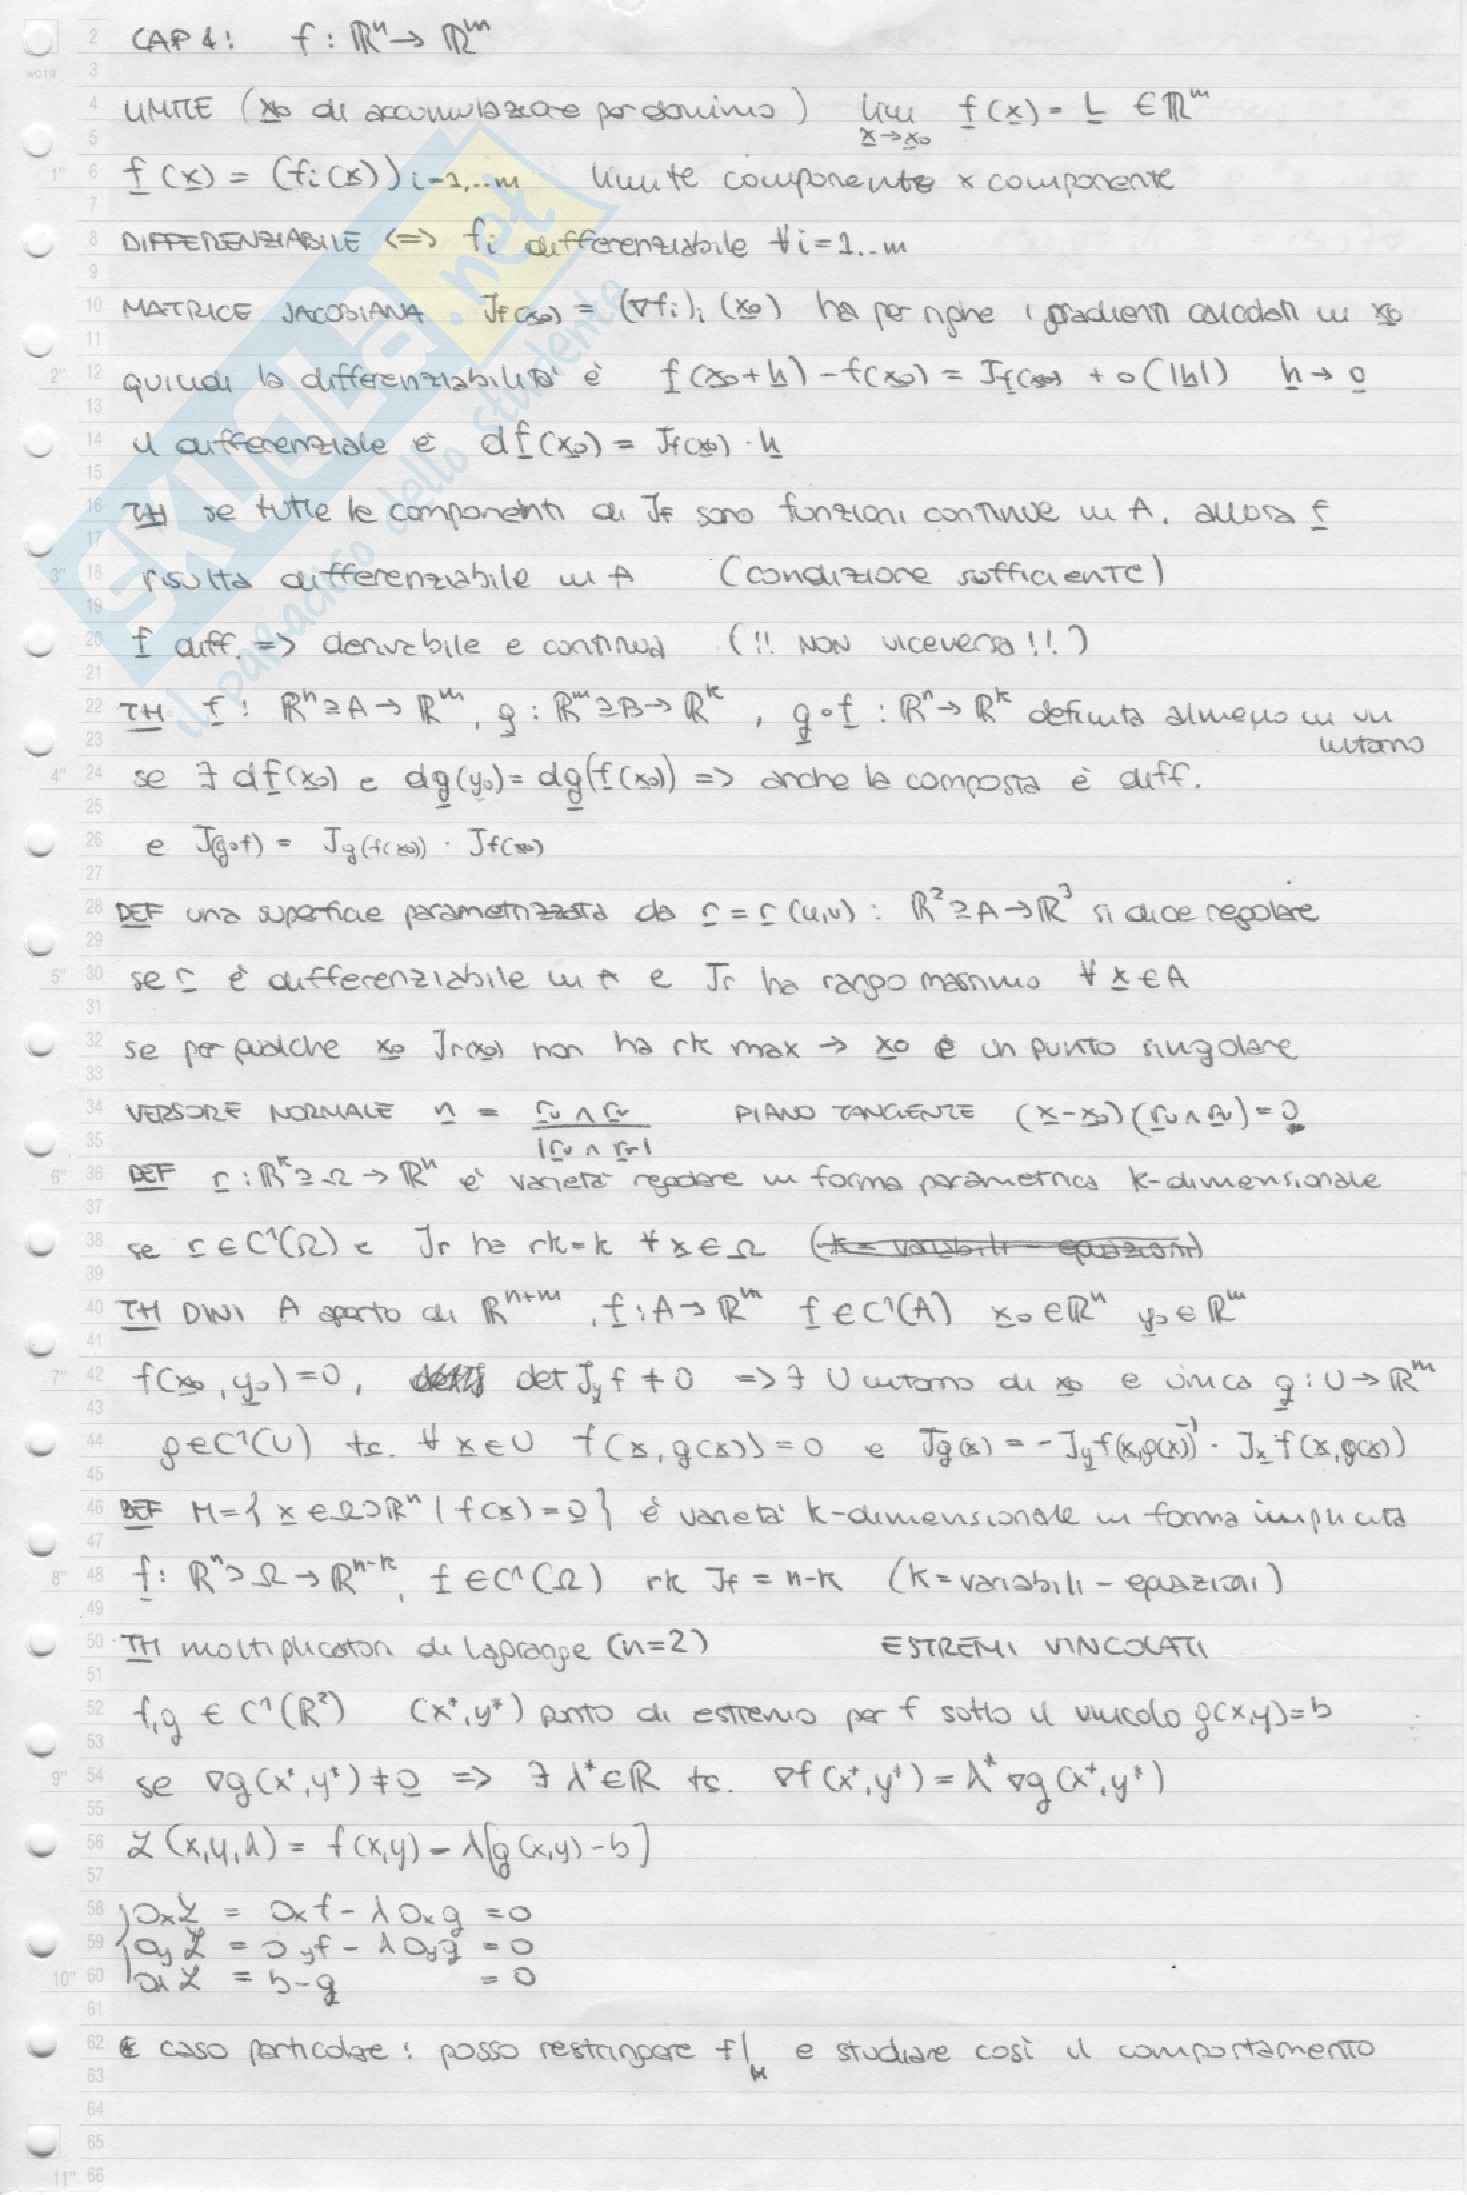 CAP 4: f : ℝⁿ → ℝᵐ
LIMITE (x̲₀ di accumulazione per dominio) lim x̲→x̲₀ f̲(x̲) = L̲ ∈ ℝᵐ
f̲(x̲) = (fᵢ(x̲)) i=1,..m limite componente x componente
DIFFERENZIABILE <=> fᵢ differenziabile ∀i=1..m
MATRICE JACOBIANA Jf(x̲₀) = (∇fᵢ)ᵢ (x̲₀) ha per righe i gradienti calcolati in x̲₀
quindi la differenziabilità è f̲(x̲₀+h̲) - f(x̲₀) = Jf(x̲₀) + o(|h̲|) h̲ → 0̲
il differenziale è df̲(x̲₀) = Jf(x̲₀) · h̲
TH se tutte le componenti di Jf sono funzioni continue in A, allora f̲
risulta differenziabile in A (condizione sufficiente)
f̲ diff. => derivabile e continua (!! NON viceversa!!)
TH f̲ : ℝⁿ ⊇ A → ℝᵐ, g̲ : ℝᵐ ⊇ B → ℝᵏ, g̲∘f̲ : ℝⁿ → ℝᵏ definita almeno in un
intorno
se ∃ df̲(x̲₀) e dg̲(y₀) = dg̲(f̲(x̲₀)) => anche la composta è diff.
e J(g∘f) = Jg(f(x̲₀)) · Jf(x̲₀)
DEF una superficie parametrizzata da r̲ = r̲(u,v) : ℝ² ⊇ A → ℝ³ si dice regolare
se r̲ è differenziabile in A e Jr ha rango massimo ∀ x̲ ∈ A
se per qualche x̲₀ Jr(x̲₀) non ha rk max → x̲₀ è un punto singolare
VERSORE NORMALE n̲ = r̲u ∧ r̲v / |r̲u ∧ r̲v| PIANO TANGENTE (x̲-x̲₀)(r̲u ∧ r̲v) = 0
DEF r̲ : ℝᵏ ⊇ Ω → ℝⁿ è varietà regolare in forma parametrica k-dimensionale
se r̲ ∈ C¹(Ω) e Jr ha rk=k ∀ x̲ ∈ Ω (k = variabili - equazioni)
TH DINI A aperto di ℝⁿ⁺ᵐ, f̲ : A → ℝᵐ f̲ ∈ C¹(A) x̲₀ ∈ ℝⁿ y̲₀ ∈ ℝᵐ
f(x̲₀, y̲₀) = 0, det Jy̲ f ≠ 0 => ∃ U intorno di x̲₀ e unica g̲ : U → ℝᵐ
g ∈ C¹(U) tc. ∀ x̲ ∈ U f(x̲, g(x̲)) = 0 e Jg(x̲) = - Jy̲ f(x̲,g(x̲))⁻¹ · Jx̲ f(x̲,g(x̲))
DEF M = { x̲ ∈ Ω ⊃ ℝⁿ | f(x̲) = 0̲ } è varietà k-dimensionale in forma implicita
f̲ : ℝⁿ ⊃ Ω → ℝⁿ⁻ᵏ, f̲ ∈ C¹(Ω) rk Jf = n-k (k = variabili - equazioni)
TH moltiplicatori di Lagrange (n=2) ESTREMI VINCOLATI
f,g ∈ C¹(ℝ²) (x*,y*) punto di estremo per f sotto il vincolo g(x,y)=b
se ∇g(x*,y*) ≠ 0̲ => ∃ λ* ∈ ℝ tc. ∇f(x*,y*) = λ* ∇g(x*,y*)
ℒ(x,y,λ) = f(x,y) - λ[g(x,y) - b]
{ ∂xℒ = ∂xf - λ∂xg = 0
∂yℒ = ∂yf - λ∂yg = 0
∂λℒ = b-g = 0
caso particolare : posso restringere f| e studiare così il comportamento
SKUOLA.net
il paradiso dello studente